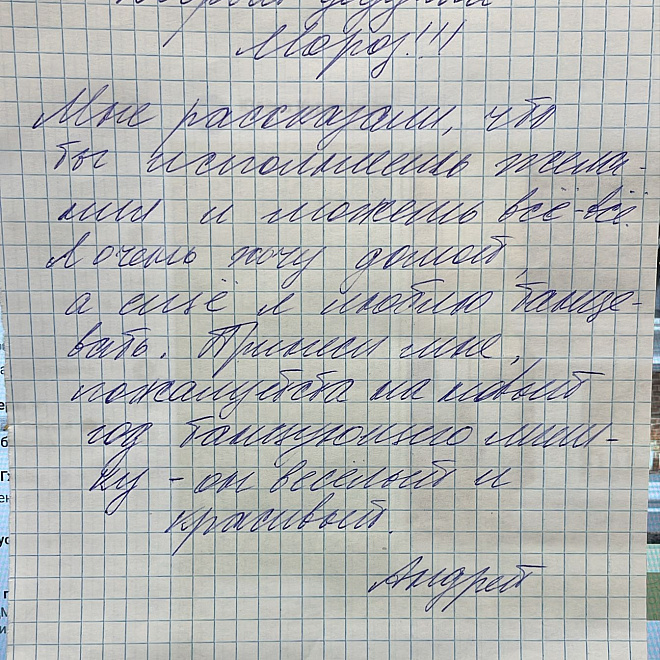 Дедушка
Мороз!!!
Мне рассказали, что
ты исполняешь жела-
ния и можешь всё-всё.
Я очень хочу домой,
а ещё я люблю танце-
вать. Принеси мне,
пожалуйста на новый
год танцующего миш-
ку - он весёлый и
красивый.
Андрей